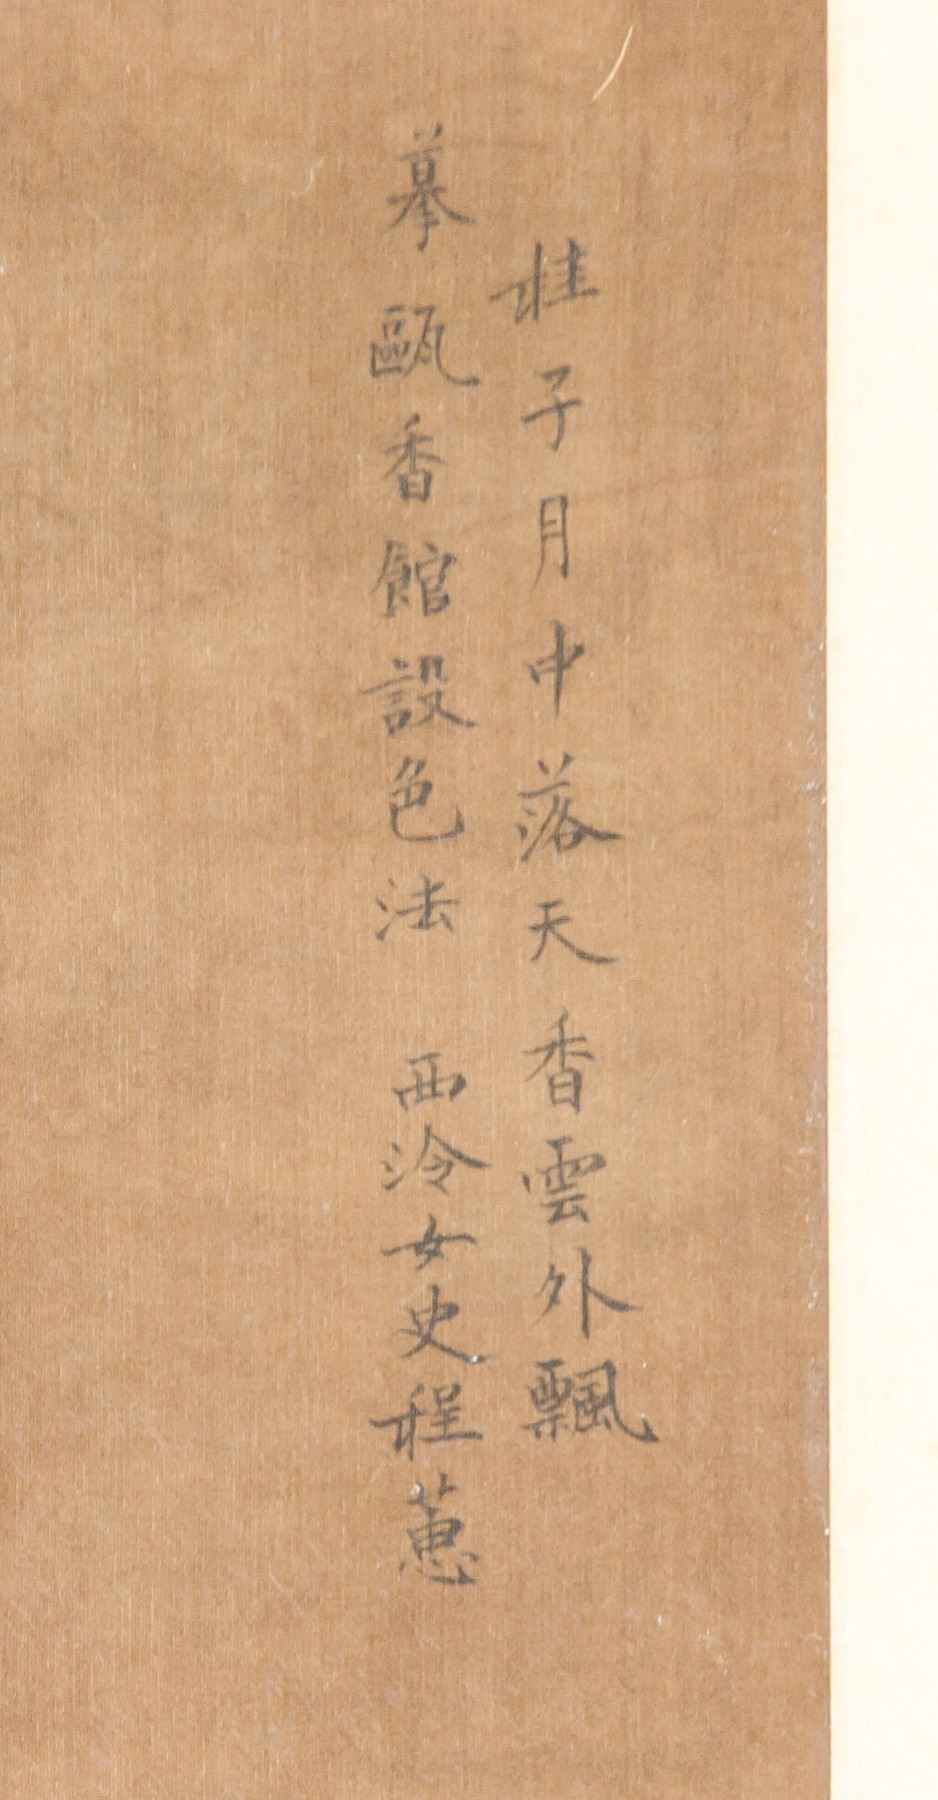 桂子月中落天香雲外飄
摹甌香館設色法 西泠女史程蕙